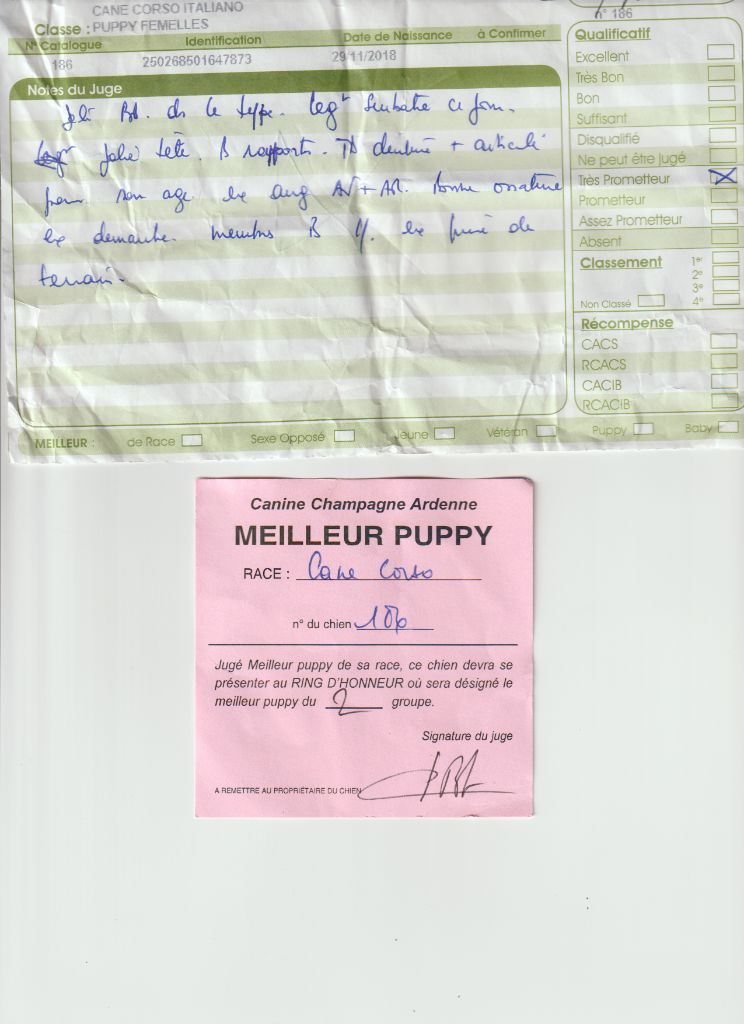 n° 186
CANE CORSO ITALIANO
Classe : PUPPY FEMELLES
N° Catalogue Identification Date de Naissance à Confirmer
186 250268501647873 29/11/2018
Notes du Juge
ds le type.
Jolie tête. B rapports. TB denture + articulé
pour son age ex ang AV + AR. Bonne ossature
ex demarche. membres B
terrain.
Qualificatif
Excellent
Très Bon
Bon
Suffisant
Disqualifié
Ne peut être jugé
Très Prometteur X
Prometteur
Assez Prometteur
Absent
Classement 1er
2e
3e
Non Classé 4e
Récompense
CACS
RCACS
CACIB
RCACIB
MEILLEUR : de Race Sexe Opposé Jeune Vétéran Puppy Baby
Canine Champagne Ardenne
MEILLEUR PUPPY
RACE : Cane Corso
n° du chien 186
Jugé Meilleur puppy de sa race, ce chien devra se
présenter au RING D'HONNEUR où sera désigné le
meilleur puppy du 2 groupe.
Signature du juge
A REMETTRE AU PROPRIÉTAIRE DU CHIEN